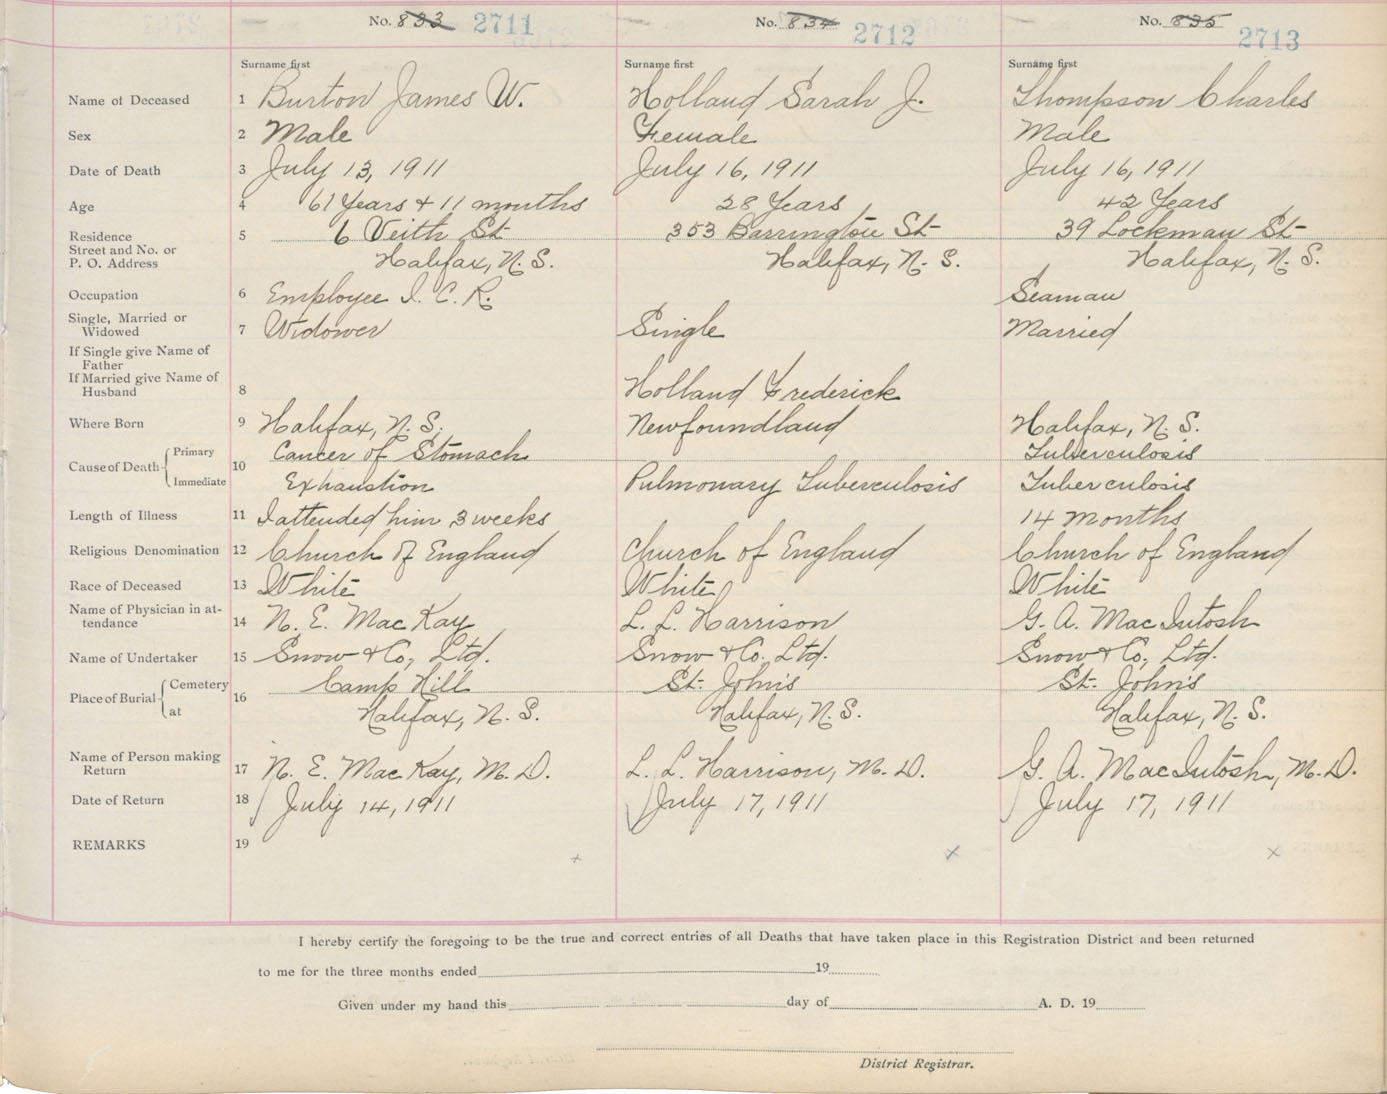 No. 833 2711 No. 834 2712 No. 835 2713
Surname first Surname first Surname first
Name of Deceased 1 Burton James W. Holland Sarah J. Thompson Charles
Sex 2 Male Female Male
Date of Death 3 July 13, 1911 July 16, 1911 July 16, 1911
Age 4 61 Years + 11 months 28 Years 42 Years
Residence 5 6 Veith St 353 Barrington St 39 Lockman St
Street and No. or
P. O. Address Halifax, N. S. Halifax, N. S. Halifax, N. S.
Occupation 6 Employee I. C. R. Seaman
Single, Married or
Widowed 7 Widower Single Married
If Single give Name of
Father
If Married give Name of
Husband 8 Holland Frederick
Where Born 9 Halifax, N. S. Newfoundland Halifax, N. S.
Cause of Death Primary 10 Cancer of Stomach Tuberculosis
Immediate Exhaustion Pulmonary Tuberculosis Tuberculosis
Length of Illness 11 I attended him 3 weeks 14 months
Religious Denomination 12 Church of England Church of England Church of England
Race of Deceased 13 White White White
Name of Physician in at-
tendance 14 N. E. MacKay L. L. Harrison G. A. MacIntosh
Name of Undertaker 15 Snow + Co, Ltd. Snow + Co. Ltd. Snow + Co, Ltd.
Place of Burial Cemetery 16 Camp Hill St. John's St. John's
at Halifax, N. S. Halifax, N. S. Halifax, N. S.
Name of Person making
Return 17 N. E. MacKay, M. D. L. L. Harrison, M. D. G. A. MacIntosh, M. D.
Date of Return 18 July 14, 1911 July 17, 1911 July 17, 1911
REMARKS 19
I hereby certify the foregoing to be the true and correct entries of all Deaths that have taken place in this Registration District and been returned
to me for the three months ended 19
Given under my hand this day of A. D. 19
District Registrar.